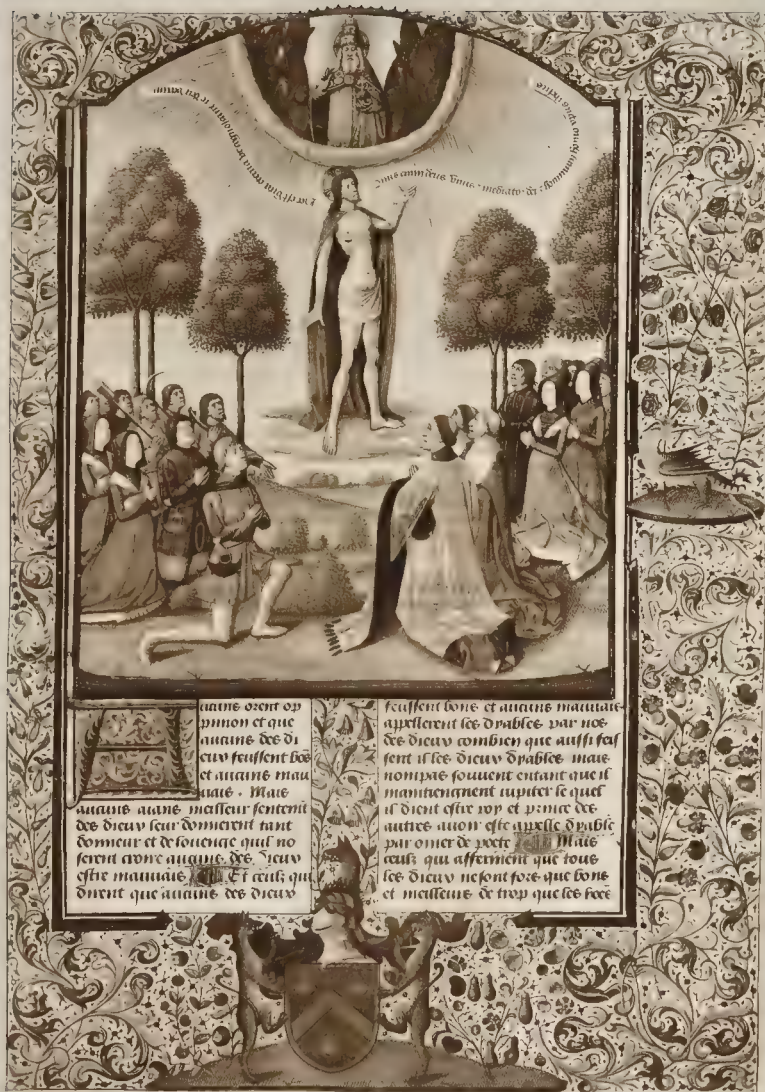 enim deus vnus mediato dei
Aucuns orent op
pinion et que
aucuns des di
eux feussent bōs
et aucuns mau
uais . Mais
aucuns aians meilleur sentent
des dieux leur donnerent tant
donneur et de louenge quil no
serent croire aucuns des dieux
estre mauuais Et ceulx qui
dirent que aucuns des dieux
feussent bons et aucuns mauuais
appellerent les dyables par nōs
des dieux combien que aussi feis
sent il les dieux dyables mais
nompas souuent entant que il
maintiengnent iupiter le quel
il dient estre roy et prince des
autres auoir este appelle dyable
par omer le poete Mais
ceulx qui afferment que tous
les dieux ne sont fors que bons
et meilleurs de trop que les